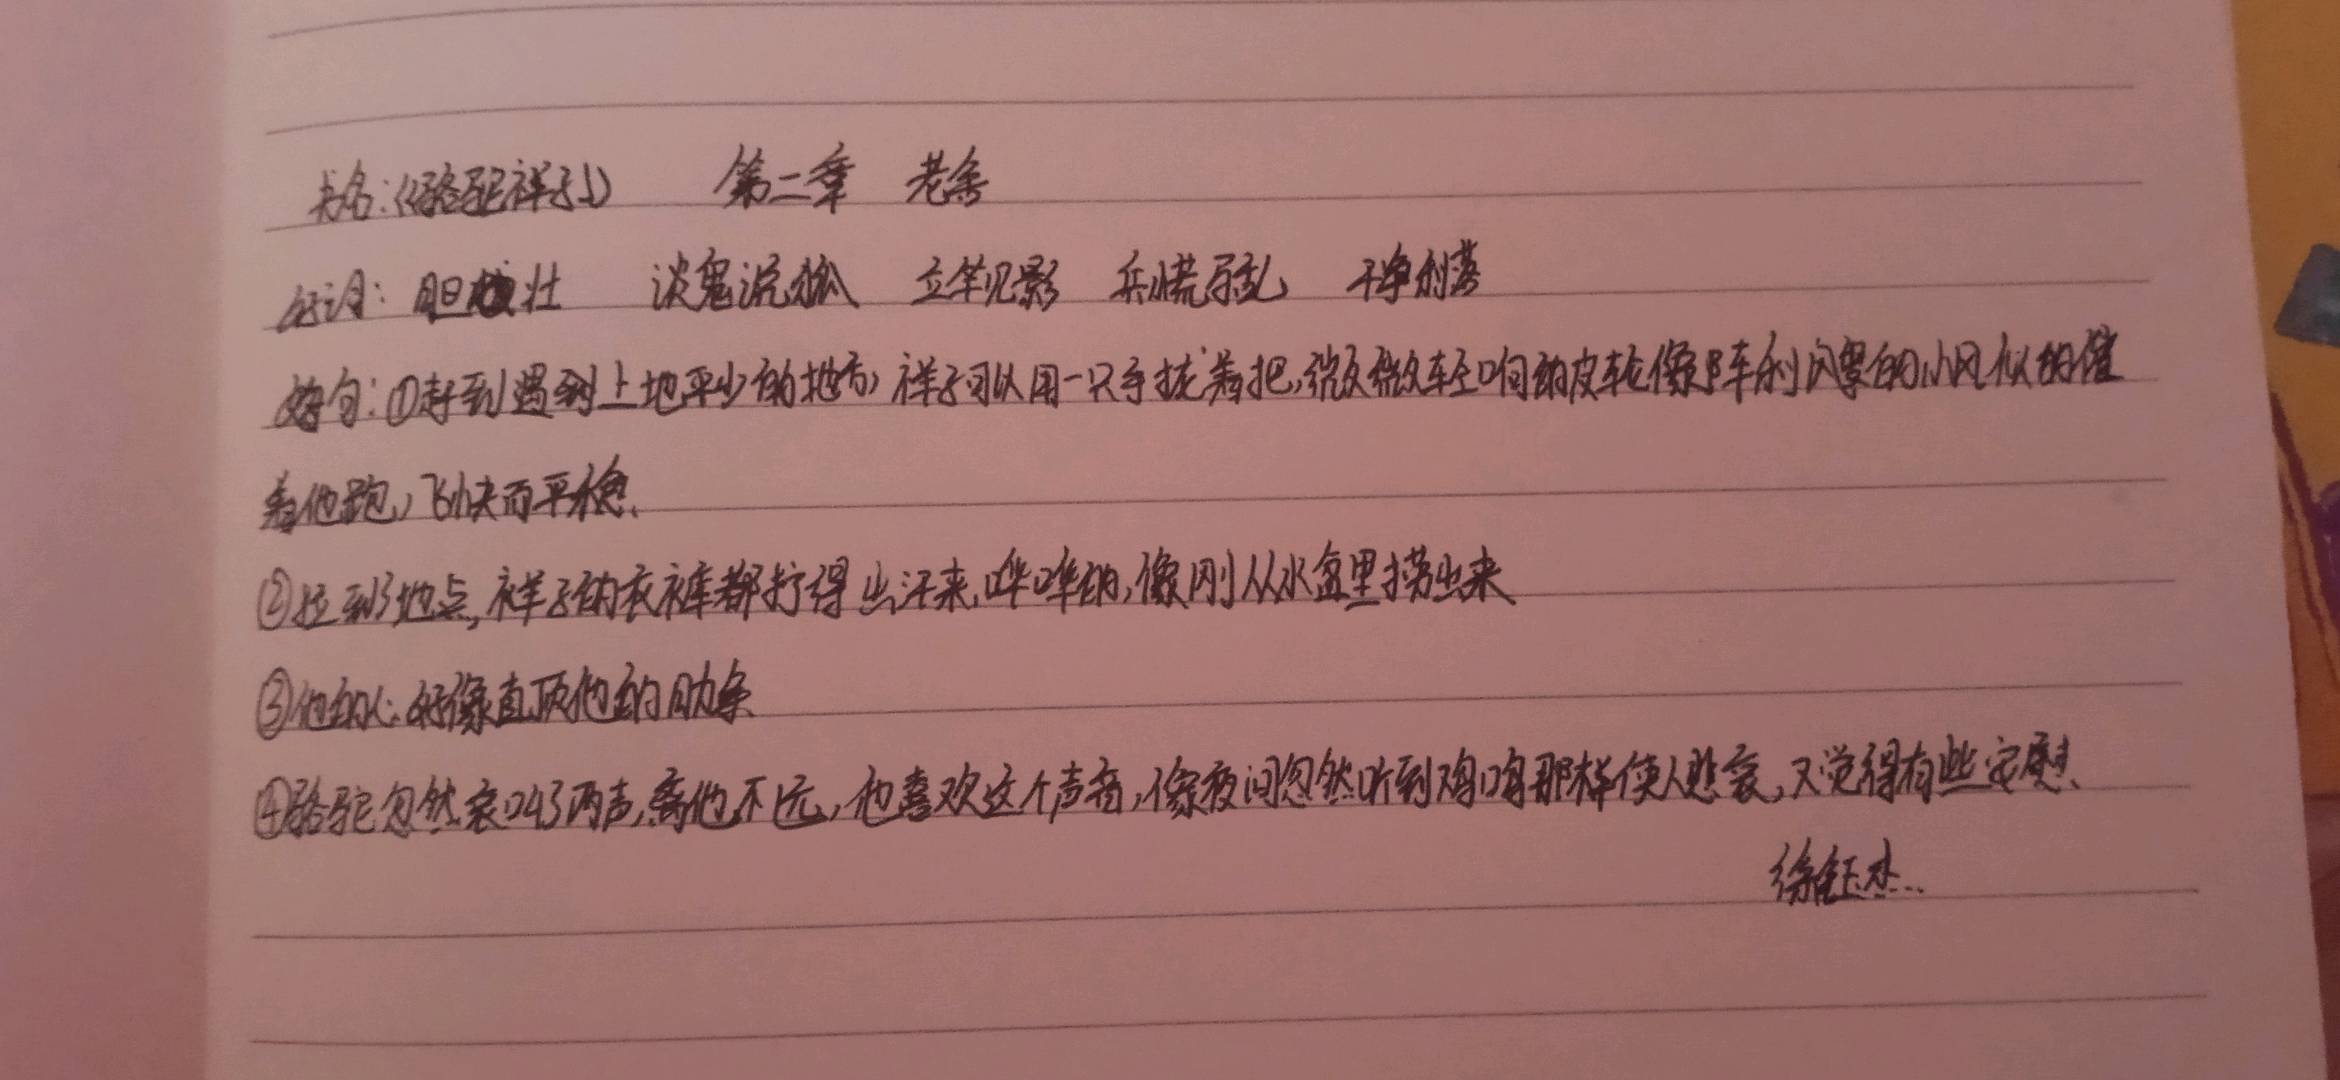 书名:《骆驼祥子》 第二章 老舍
好词: 胆壮 谈鬼说狐 立竿见影 兵慌马乱 干净利落
好句:①赶到遇到上地平少的地方,祥子可以用一只手拢着把,微微轻响的皮轮像阵利风的小风似的催
着他跑,飞快而平稳、
②拉到了地点,祥子的衣裤都拧得出汗来,哗哗的,像刚从水盆里捞出来
③他的心好像直顶他的肋条
④骆驼忽然哀叫了两声,离他不远,他喜欢这个声音,像夜间忽然听到鸡鸣那样使人悲哀,又觉得有些安慰、
徐钰杰...